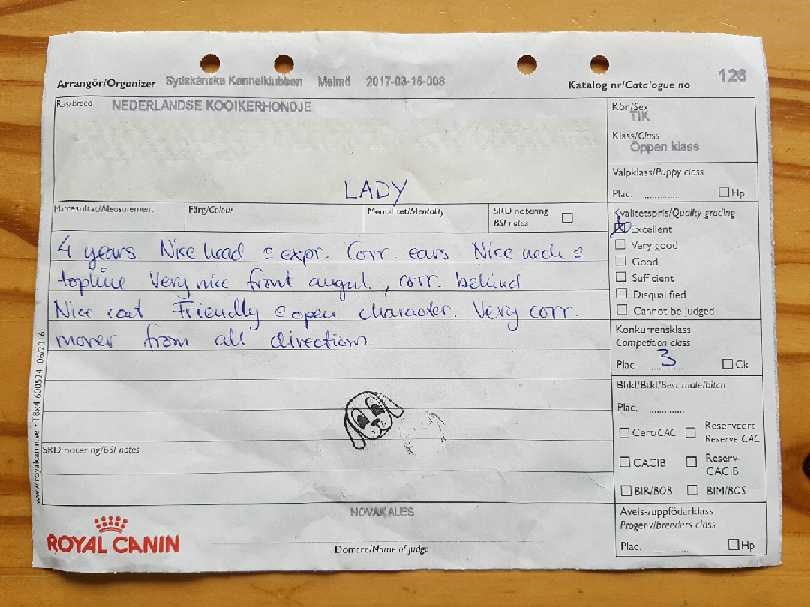 Arrangör/Organizer Sydskånska Kennelklubben Malmö 2017-03-16-008 Katalog nr/Catalogue no 128
Ras/Breed NEDERLANDSE KOOIKERHONDJE
Kön/Sex
TIK
Klass/Class
Öppen klass
LADY
Valpklass/Puppy class
Plac. Hp
Färg/Colour Mentalitet/Mentality SRD notering
BSI notes
Kvalitetspris/Quality grading
Excellent
Very good
Good
Sufficient
Disqualified
Cannot be judged
4 years Nice head = expr. Corr. ears Nice neck =
topline Very nice front angul., corr. behind
Nice coat Friendly = open character. Very corr.
mover from all directions
Konkurrensklass
Competition class
Plac. 3 Ck
Plac.
Cert/CAC Reservcert
Reserve CAC
CACIB Reserv-
CACIB
BIR/BOS BIM/BOS
SRD notering/BSI notes
NOVAKALES
Domare/Name of judge
ROYAL CANIN
Avels-/uppfödarklass
Progeny/breeders class
Plac. Hp